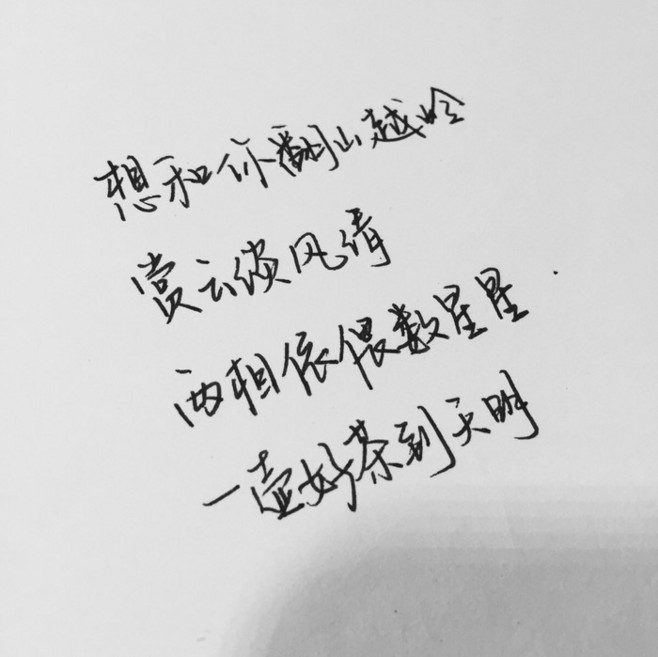 想和你翻山越岭
赏云淡风清
两相依偎数星星
一壶好茶到天明